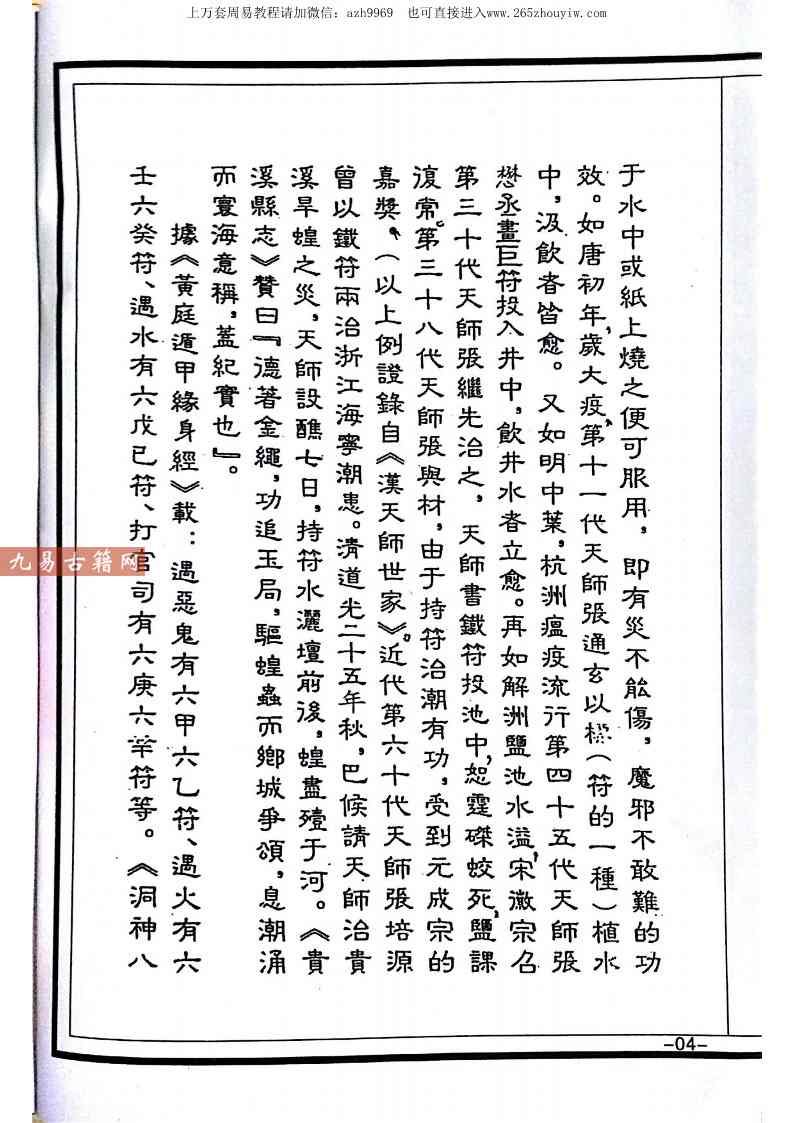 上万套周易教程请加微信：azh9969 也可直接进入www.265zhouyiw.com
于水中或紙上燒之便可服用，即有災不能傷，魔邪不敢難的功
效。如唐初年，歲大疫，第十一代天師張通玄以（符的一種）植水
中，汲飲者皆愈。又如明中葉，杭洲瘟疫流行第四十五代天師張
懋丞畫巨符投入井中，飲井水者立愈。再如解洲鹽池水溢，宋徽宗召
第三十代天師張繼先治之，天師書鐵符投池中，怨霆磔蛟死，鹽課
復常。第三十八代天師張與材，由于持符治潮有功，受到元成宗的
嘉獎。（以上例證錄自《漢天師世家》。近代第六十代天師張培源
曾以鐵符兩治浙江海寧潮患。清道光二十五年秋，巴候請天師治貴
溪旱蝗之災，天師設醮七日，持符水灑壇前後，蝗盡殪于河。《貴
溪縣志》贊曰『德著金繩，功追玉局，驅蝗蟲而鄉城爭頌，息潮涌
而寰海意稱，蓋紀實也』。
據《黃庭遁甲緣身經》載：遇惡鬼有六甲六乙符、遇火有六
壬六癸符、遇水有六戊已符、打官司有六庚六辛符等。《洞神八
九易古籍网
-04-